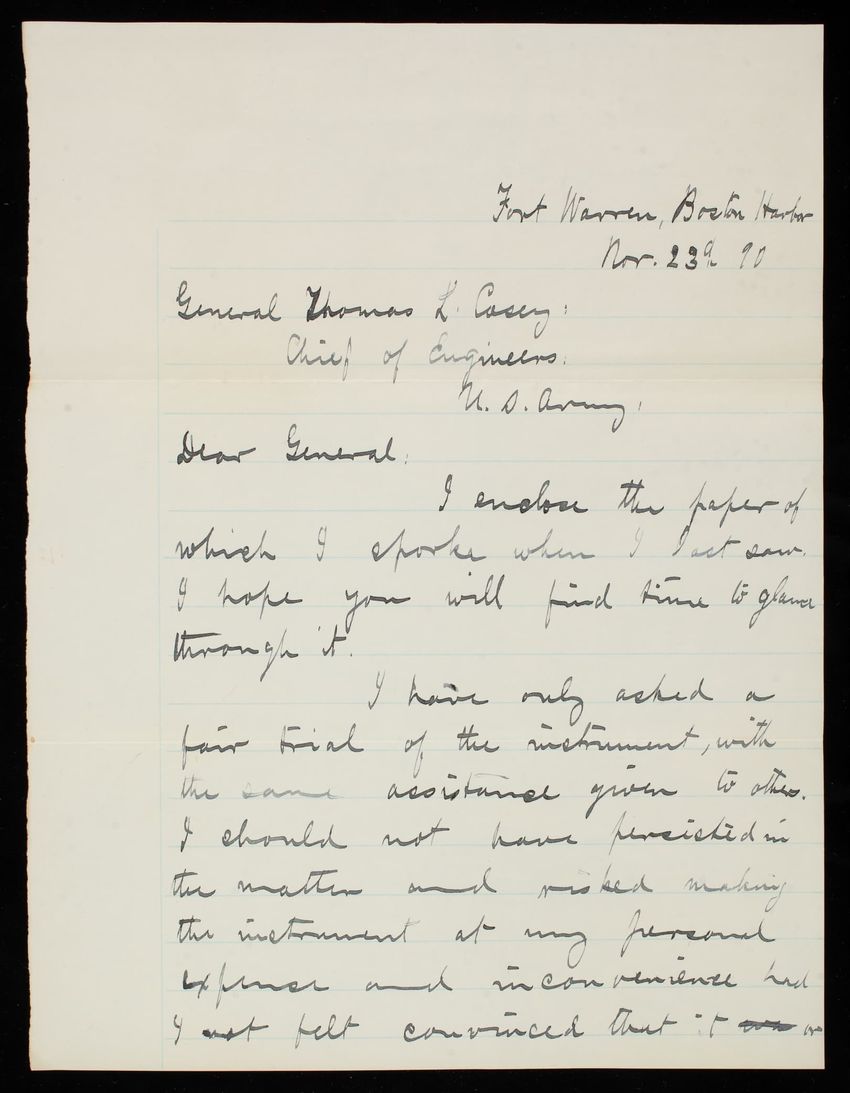 Fort Warren, Boston Harbor
Nov. 23d 90
General Thomas L. Casey:
Chief of Engineers:
U. S. Army:
Dear General:
I enclose the paper of
which I sporke when I last saw.
I hope you will find time to glance
through it.
I have only asked a
fair trial of the instrument, with
the same assistance given to others.
I should not have persisted in
the matter and risked making
the instrument at my personal
expense and inconvenience had
I not felt convinced that it or